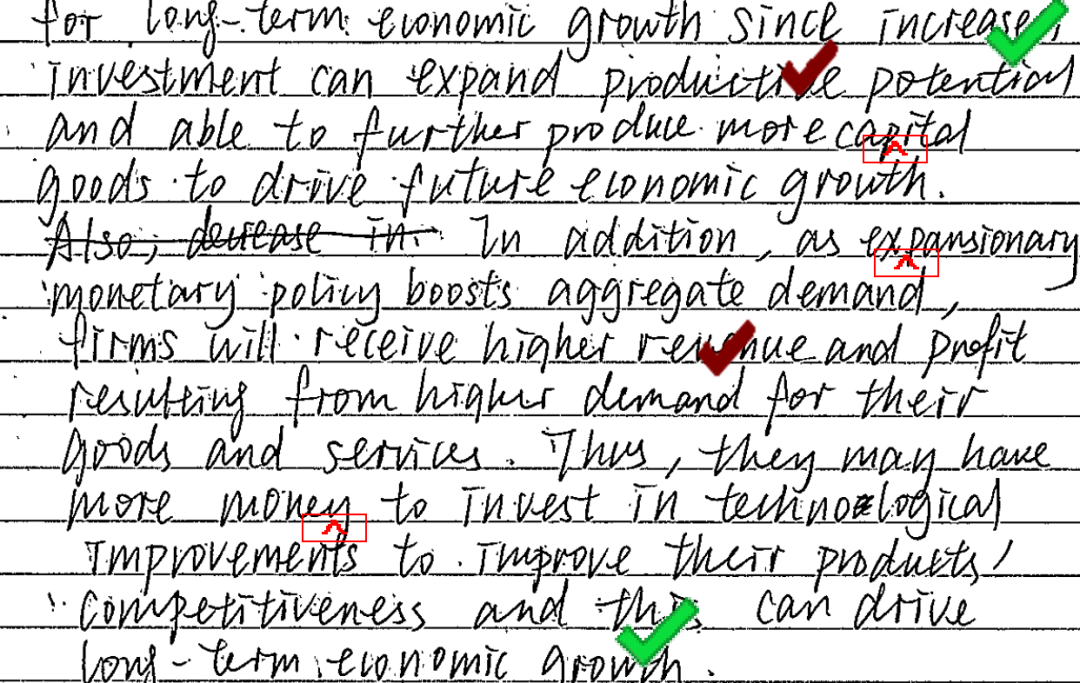 for long-term economic growth since increase
investment can expand productive potential
and able to further produce more capital
goods to drive future economic growth.
Also, decrease in. In addition, as expansionary
monetary policy boosts aggregate demand,
firms will receive higher revenue and profit
resulting from higher demand for their
goods and services. Thus, they may have
more money to invest in technological
improvements to improve their products'
competitiveness and this can drive
long-term economic growth.